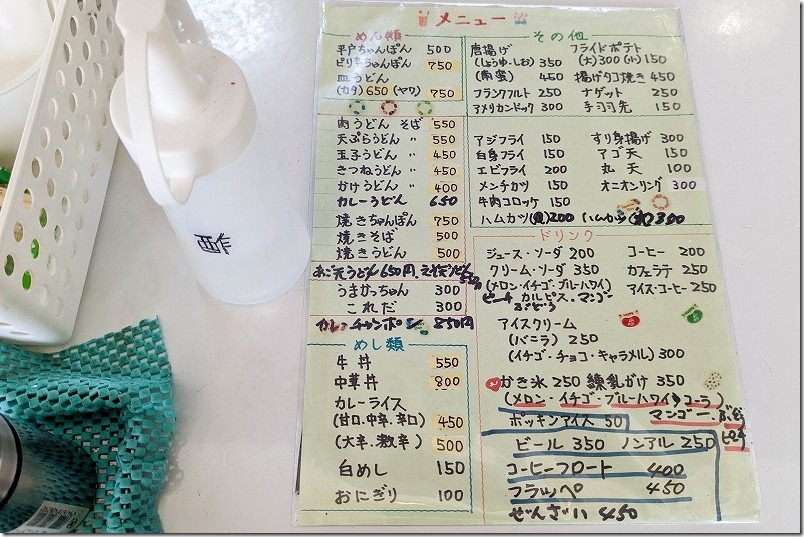 メニュー
めん類
平戸ちゃんぽん 500
ピリ辛ちゃんぽん 750
皿うどん
(カタ)650 (ヤワ)750
肉うどん そば 550
天ぷらうどん 〃 550
玉子うどん 〃 450
きつねうどん 〃 450
かけうどん 〃 400
カレーうどん 650
焼きちゃんぽん 750
焼きそば 500
焼きうどん 500
あご天うどん 650円
うまかっちゃん 300
これだ 300
カレーチャンポン 850円
めし類
牛丼 550
中華丼 800
カレーライス
(甘口、中辛、辛口) 450
(大辛、激辛) 500
白めし 150
おにぎり 100
その他
唐揚げ
(しょうゆ・しお) 350
(南蛮) 450
フランクフルト 250
アメリカンドック 300
フライドポテト
(大)300 (小)150
揚げタコ焼き 450
ナゲット 250
手羽先 150
アジフライ 150
白身フライ 150
エビフライ 200
メンチカツ 150
牛肉コロッケ 150
すり身揚げ 300
アゴ天 150
丸天 100
オニオンリング 300
ハムカツ 200 ハムカツ 300
ドリンク
ジュース・ソーダ 200
クリーム・ソーダ 350
(メロン・イチゴ・ブルーハワイ)
ピーチ カルピス・マンゴー
ぶどう
コーヒー 200
カフェラテ 250
アイス・コーヒー 250
アイスクリーム
(バニラ) 250
(イチゴ・チョコ・キャラメル) 300
かき氷 250 練乳がけ 350
(メロン・イチゴ・ブルーハワイ・コーラ)
マンゴー・ぶどう
ピーチ
ポッキンアイス 50
ビール 350 ノンアル 250
コーヒーフロート 400
フラッペ 450
ぜんざい 450
酢